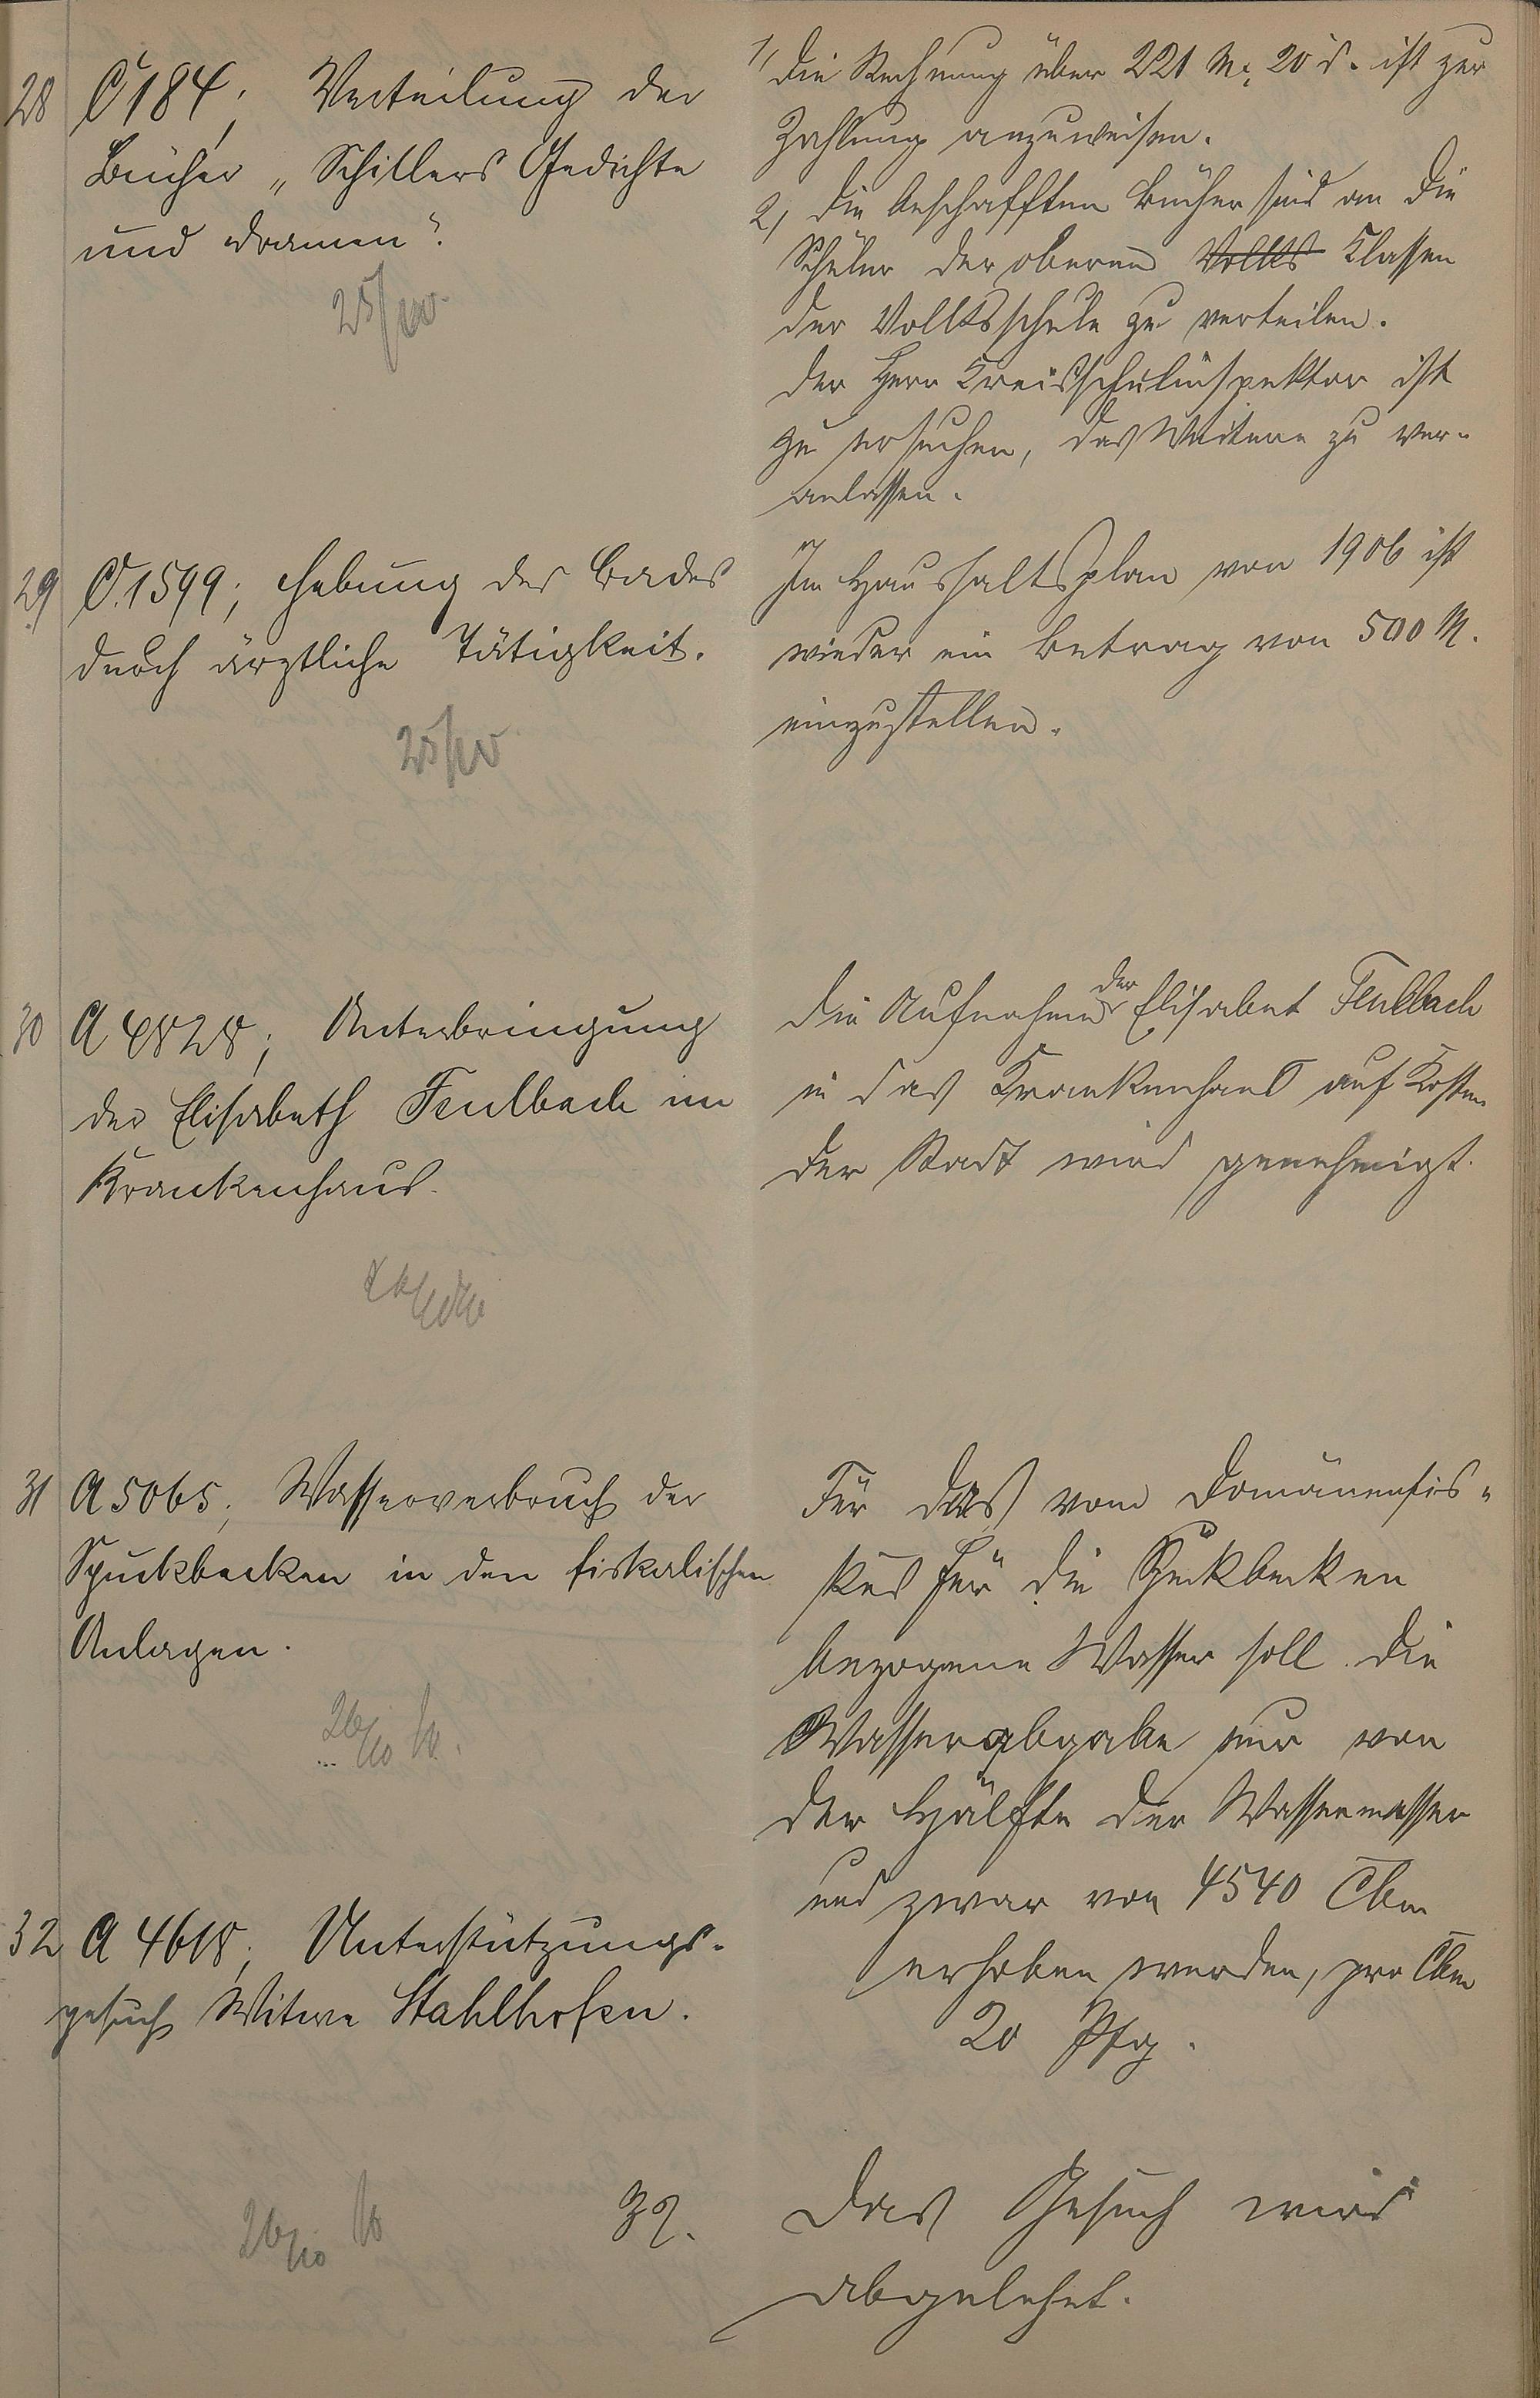 28 C 184; Verteilung der
Bücher „Schillers Gedichte
und Dramen".
25/10
1, Die Rechnung über 221 M. 20 d. ist zur
Zahlung anzuweisen.
2, Die beschafften Bücher sind an die
Schüler der oberen Volks Klassen
der Volksschule zu verteilen.
Der Herr Kreisschulinspektor ist
zu ersuchen, das Weitere zu ver-
anlassen.
29 C. 1599; Hebung des Bades
durch ärztliche Tätigkeit.
25/10
Im Haushaltsplan von 1906 ist
wieder ein Betrag von 500 M.
einzustellen.
30 A 4828; Unterbringung
der Elisabeth Feulbach im
Krankenhaus.
Die Aufnahme der Elisabet Feulbach
in das Krankenhaus auf Kosten
der Stadt wird genehmigt.
31 A 5065; Wasserverbrauch der
Spuckbecken in den fiskalischen
Anlagen.
26/10
Für das vom Domänenfis-
kus für die Spuckbecken
bezogene Wasser soll die
Wasserabgabe nur von
der Hälfte der Wassermesser
und zwar von 4540 Cbm
erhoben werden, pro Cbm
20 Pfg.
32 A 4618; Unterstützungs-
gesuch Witwe Stahlhofen.
26/10
32. Das Gesuch wird
abgelehnt.